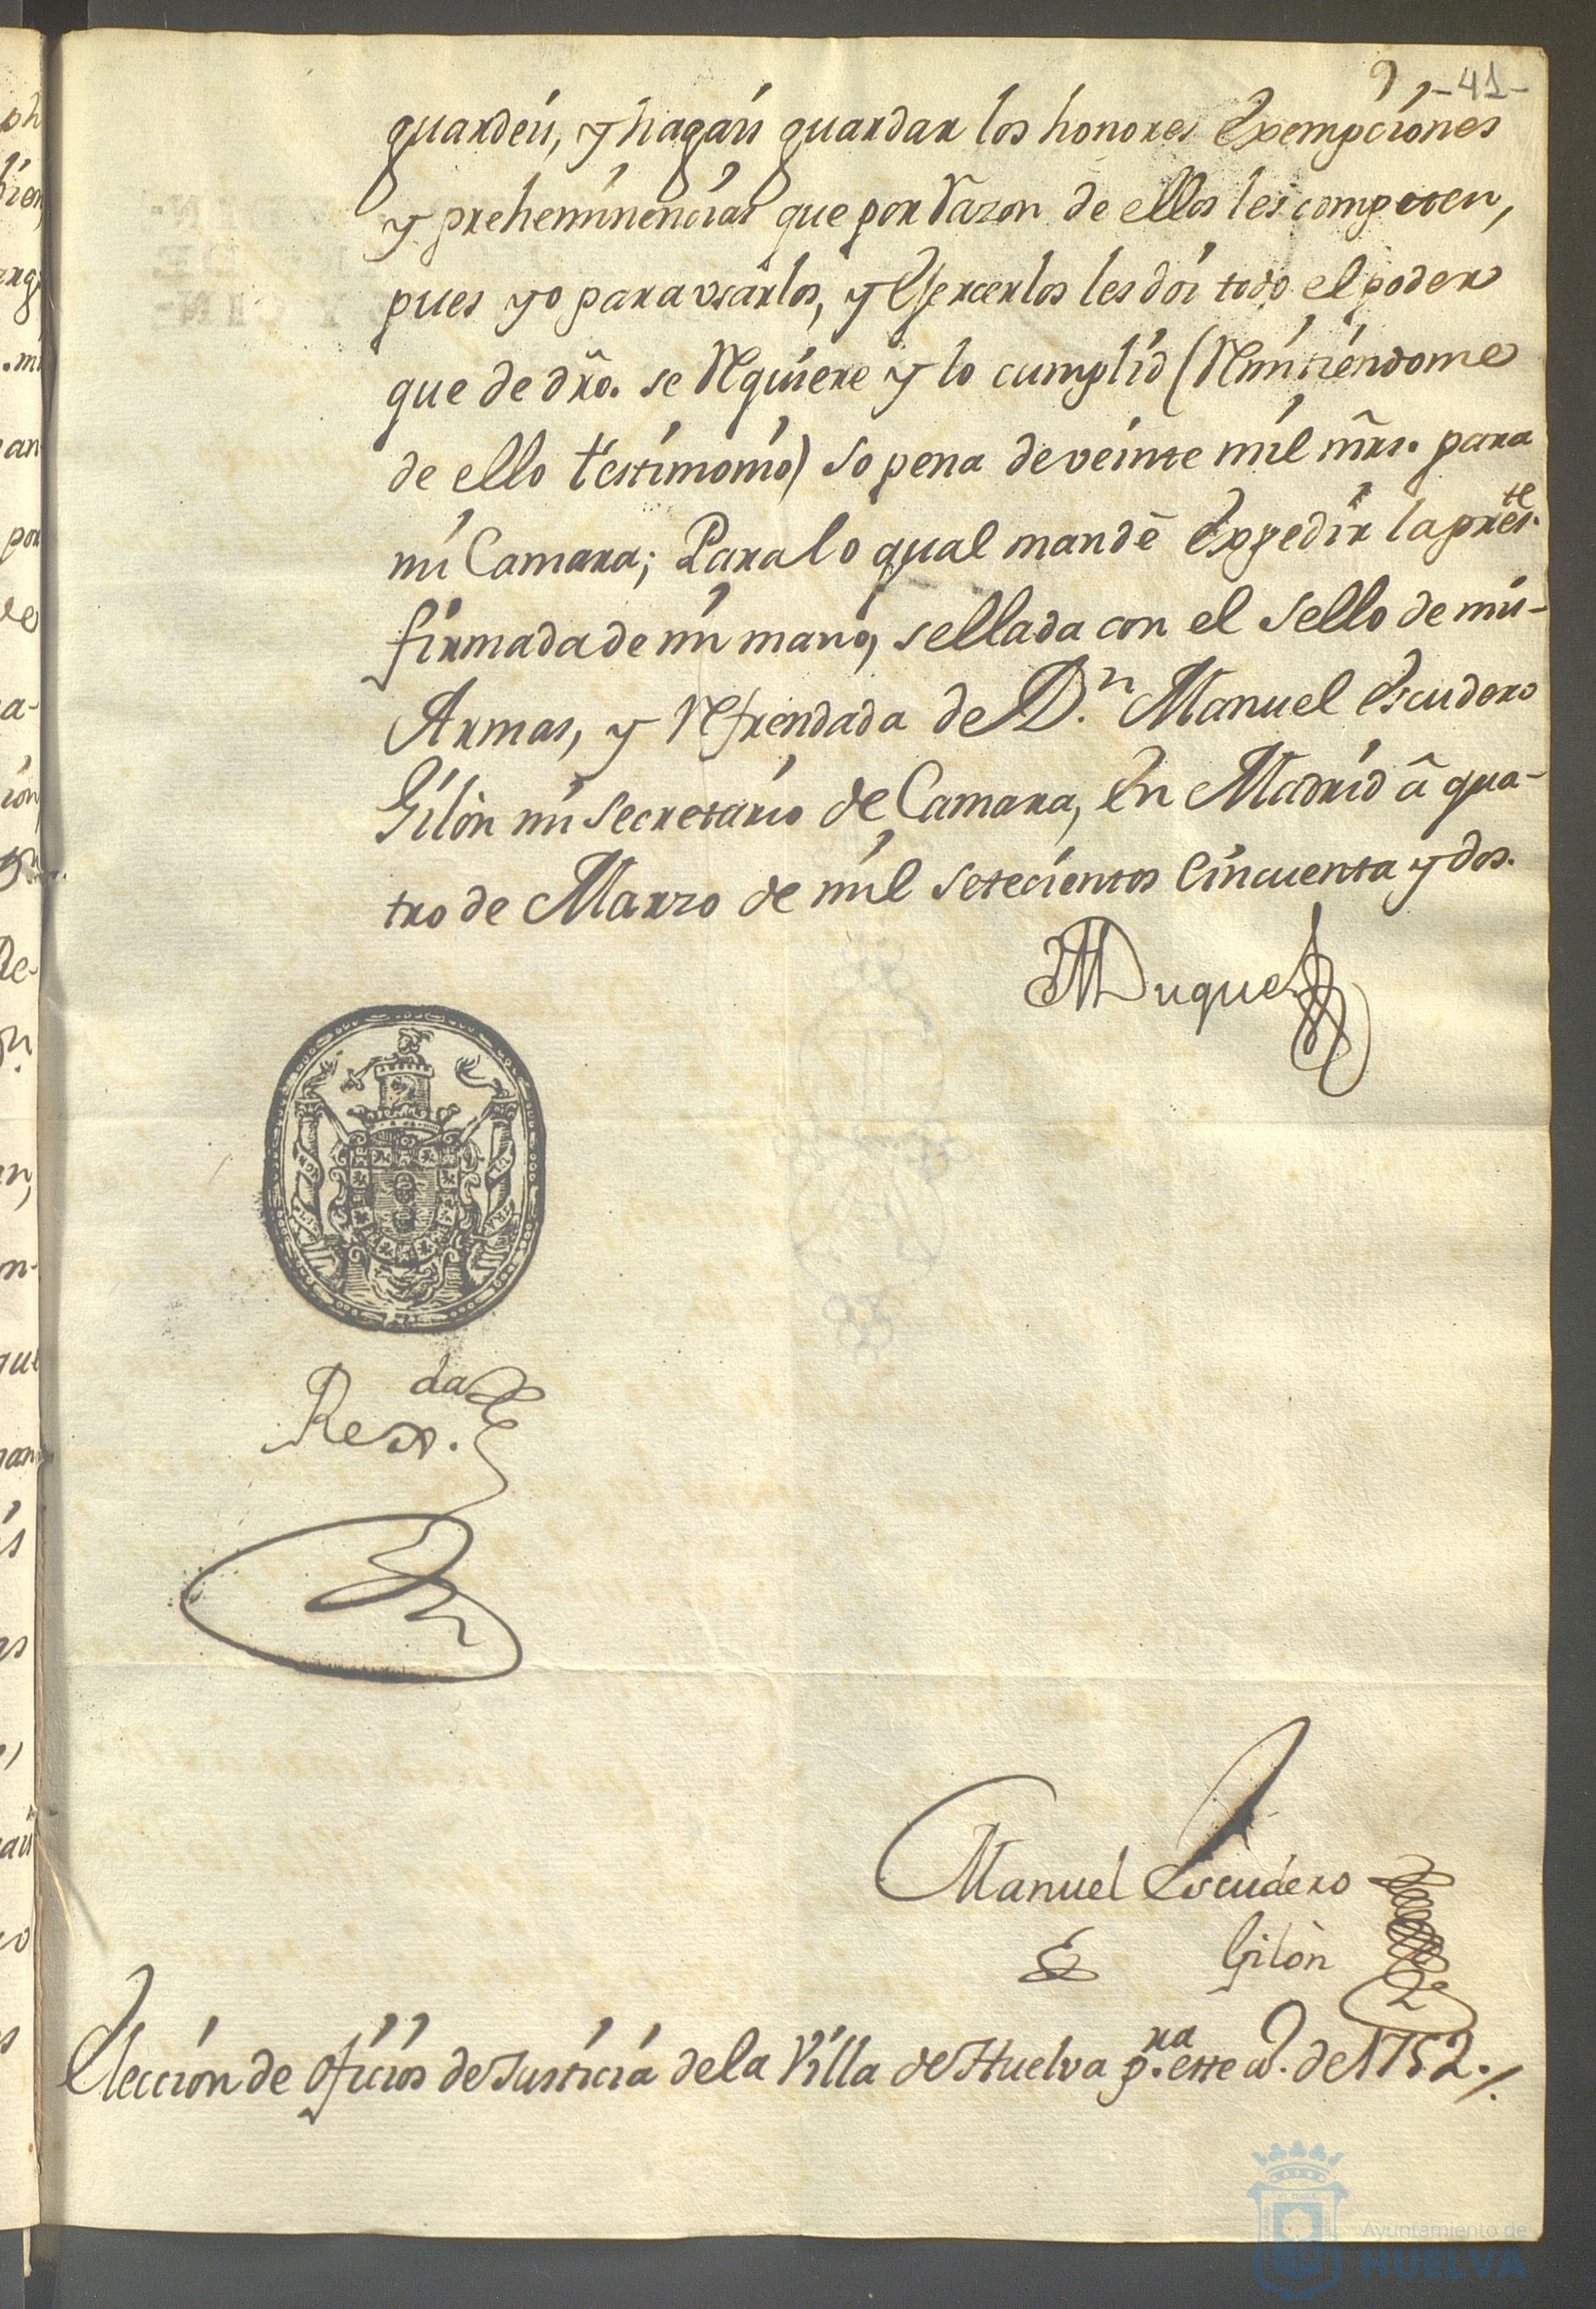 9 -41-
guardeis, y hagais guardar los honores Exempciones
y preheminencias que por Razon de ellos les competen,
pues yo para usarlos, y Exercerlos les dói todo el poder
que de dro. se Requiere y lo cumplid (Remitiendome
de ello testimonio) so pena de veinte mil mrs. para
mi Camara; Para lo qual mandè Expedir la preste.
firmada de mi mano, sellada con el sello de mis
Armas, y Refrendada de Dn. Manuel Escudero
Gilòn mi Secretario de Camara, En Madrid â qua-
tro de Marzo de mil setecientos Cincuenta y dos.
El Duque
Rexda.
Manuel Escudero
Gilòn
Elección de oficios de Justicia de la Villa de Huelva pra. este a. de 1752./.
Ayuntamiento de
HUELVA